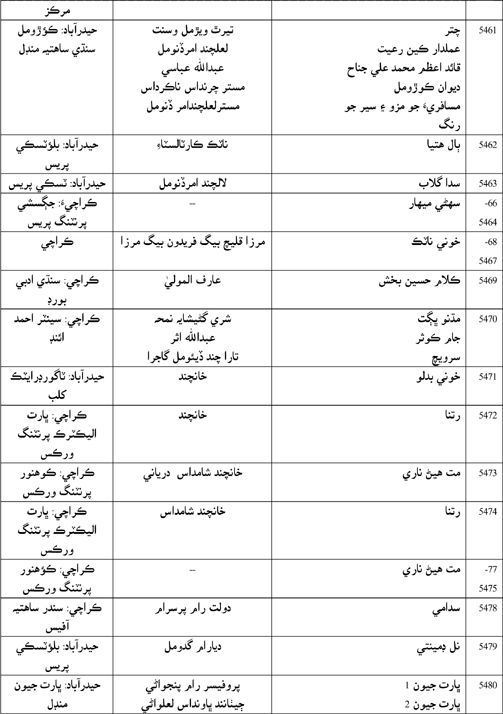 مرڪز
5461 چتر تيرٿ ويڙمل وسنت حيدرآباد: ڪوڙومل
عملدار ڪين رعيت لعلچند امرڏنومل سنڌي ساهتيہ منڊل
قائد اعظم محمد علي جناح عبدالله عباسي
ديوان ڪوڙومل مستر چرنداس ناڪرداس
مسافريءَ جو مزو ۽ سير جو مسترلعلچندامر ڏنومل
رنگ
5462 ٻال هتيا ناٽڪ ڪارٽالسٽاءِ حيدرآباد: بلوٽسڪي
پريس
5463 سدا گلاب لالچند امرڏنومل حيدرآباد: ٽسڪي پريس
66- سهڻي ميهار -- ڪراچيءَ: جڳسشي
5464 پرنٽنگ پريس
68- خوني ناٽڪ مرزا قليچ بيگ فريدون بيگ مرزا ڪراچي
5467
5469 ڪلام حسين بخش عارف الموليٰ ڪراچي: سنڌي ادبي
بورڊ
5470 مڌنو ڀڳت شري گڻيشايہ نمحہ ڪراچي: سينٽر احمد
جام ڪوثر عبدالله اثر ائنڊ
سرويچ تارا چند ڏيئومل گاجرا
5471 خوني بدلو خانچند حيدرآباد: ٽاگورڊرايٽڪ
ڪلب
5472 رتنا خانچند ڪراچي: ڀارت
اليڪٽرڪ پرنٽنگ
ورڪس
5473 مت هيڻ ناري خانچند شامداس درياني ڪراچي: ڪوهنور
پرنٽنگ ورڪس
5474 رتنا خانچند شامداس ڪراچي: ڀارت
اليڪٽرڪ پرنٽنگ
ورڪس
77- مت هيڻ ناري -- ڪراچي: ڪوهنور
5475 پرنٽنگ ورڪس
5478 سدامي دولت رام پرسرام ڪراچي: سندر ساهتيہ
آفيس
5479 نل دمينتي ديارام گدومل حيدرآباد: بلوٽسڪي
پريس
5480 ڀارت جيون 1 پروفيسر رام پنجواڻي حيدرآباد: ڀارت جيون
ڀارت جيون 2 ڄيٺانند ڀاونداس لعلواڻي منڊل